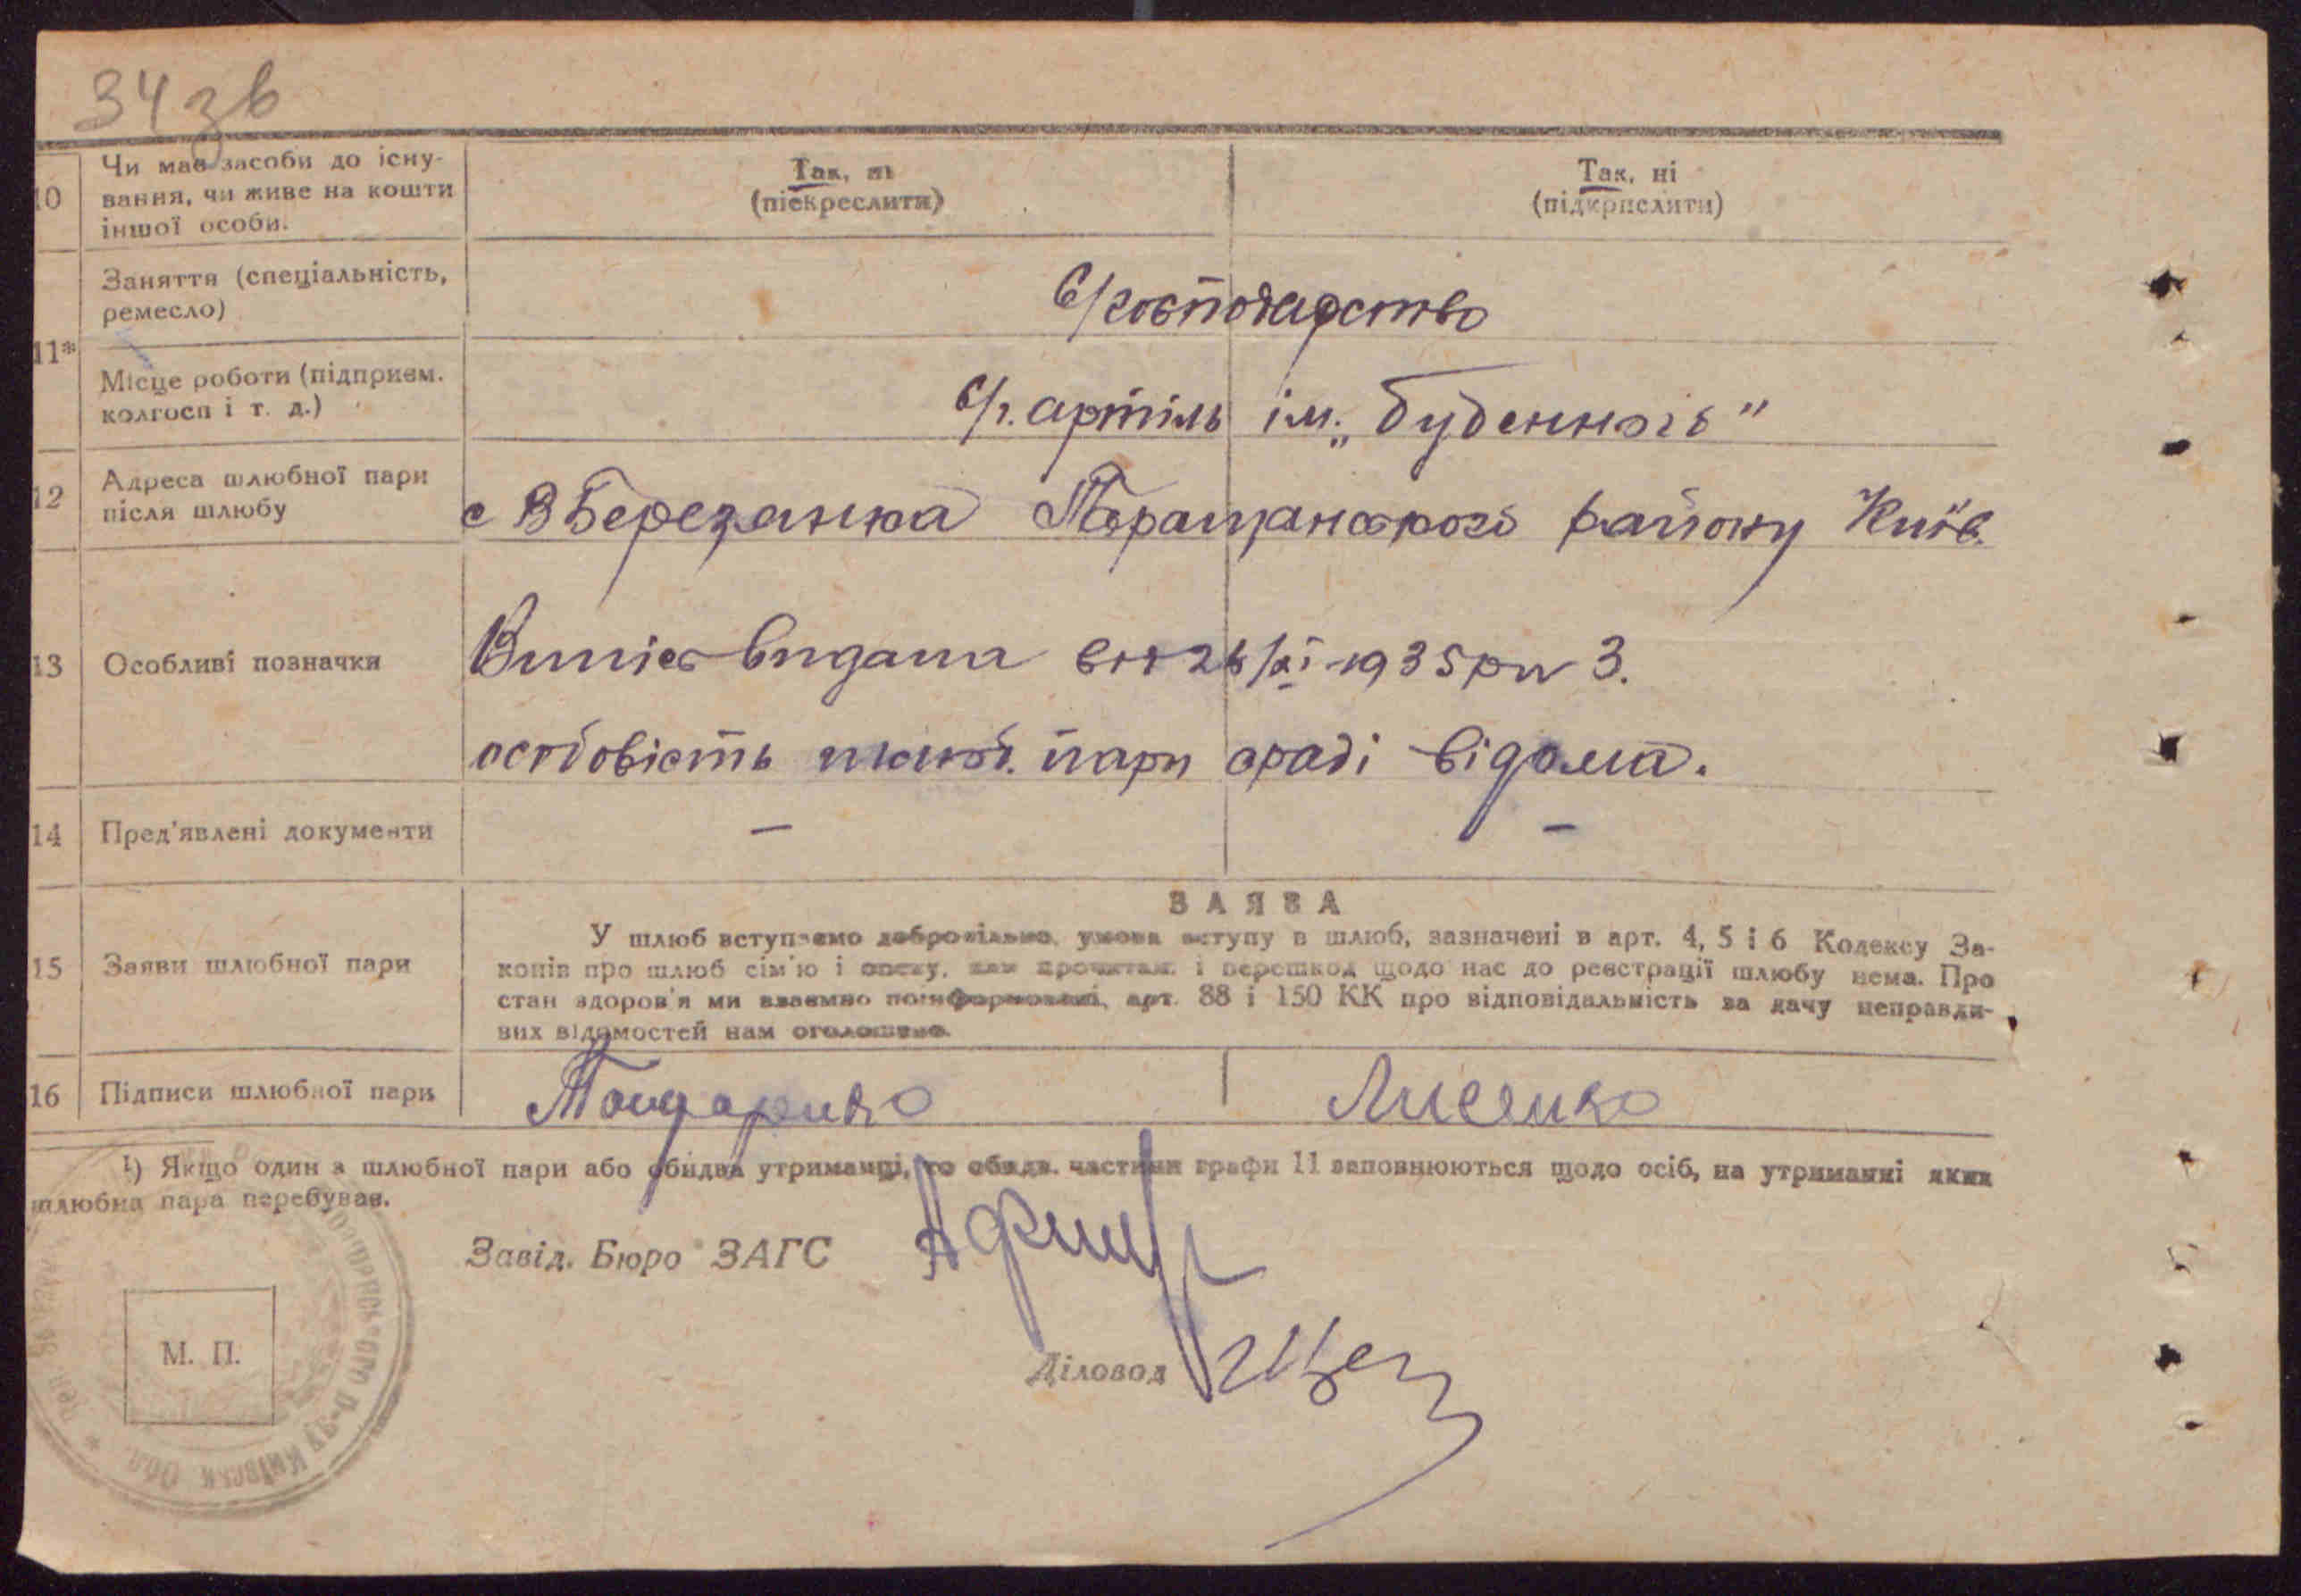 34 зв
10 Чи має засоби до існу- Так, ні Так, ні
вання, чи живе на кошти (піекреслити) (підкрпслити)
іншої особи.
Заняття (спеціальність,
ремесло) С/господарство
11*
Місце роботи (підприєм.
колгосп і т. д.) С/г. артіль ім. „Буденного"
12 Адреса шлюбної пари
після шлюбу с В Березанка Таращанского району Київ.
13 Особливі позначки Випис видана 26/XI 1935 р № 3.
особовість шлюб. пари сраді відома.
14 Пред'явлені документи — —
ЗАЯВА
15 Заяви шлюбної пари
У шлюб вступаємо добровільно, умова вступу в шлюб, зазначені в арт. 4, 5 і 6 Кодексу За-
конів про шлюб сім'ю і опеку, нам прочитані і перешкод щодо нас до реєстрації шлюбу нема. Про
стан здоров'я ми взаємно поінформовані, арт. 88 і 150 КК про відповідальність за дачу неправди-
вих відомостей нам оголошено.
16 Підписи шлюбної пари Лисенко
1) Якщо один з шлюбної пари або обидва утриманці, то обидв. частини графи 11 заповнюються щодо осіб, на утриманні яких
шлюбна пара перебуває.
Завід. Бюро ЗАГС
М. П.
Діловод